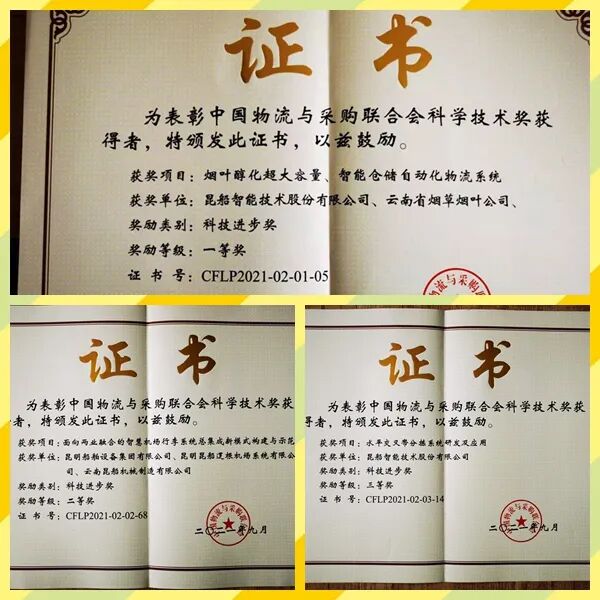 证书
为表彰中国物流与采购联合会科学技术奖获
得者，特颁发此证书，以兹鼓励。
获奖项目：烟叶醇化超大容量、智能仓储自动化物流系统
获奖单位：昆船智能技术股份有限公司、云南省烟草烟叶公司、
奖励类别：科技进步奖
奖励等级：一等奖
证书号：CFLP2021-02-01-05
物流与采购联
证书
为表彰中国物流与采购联合会科学技术奖获
者，特颁发此证书，以兹鼓励。
获奖项目：面向两业融合的智慧机场行李系统总集成新模式构建与示范
获奖单位：昆明船舶设备集团有限公司、昆明昆船逻根机场系统有限公
司、云南昆船机械制造有限公司
奖励类别：科技进步奖
奖励等级：二等奖
证书号：CFLP2021-02-02-68
中国物流与采购联合会
二〇二一年九月
证书
为表彰中国物流与采购联合会科学技术奖获
得者，特颁发此证书，以兹鼓励。
获奖项目：水平交叉带分拣系统研发及应用
获奖单位：昆船智能技术股份有限公司
奖励类别：科技进步奖
奖励等级：三等奖
证书号：CFLP2021-02-03-14
中国物流与采购联合会
二〇二一年九月